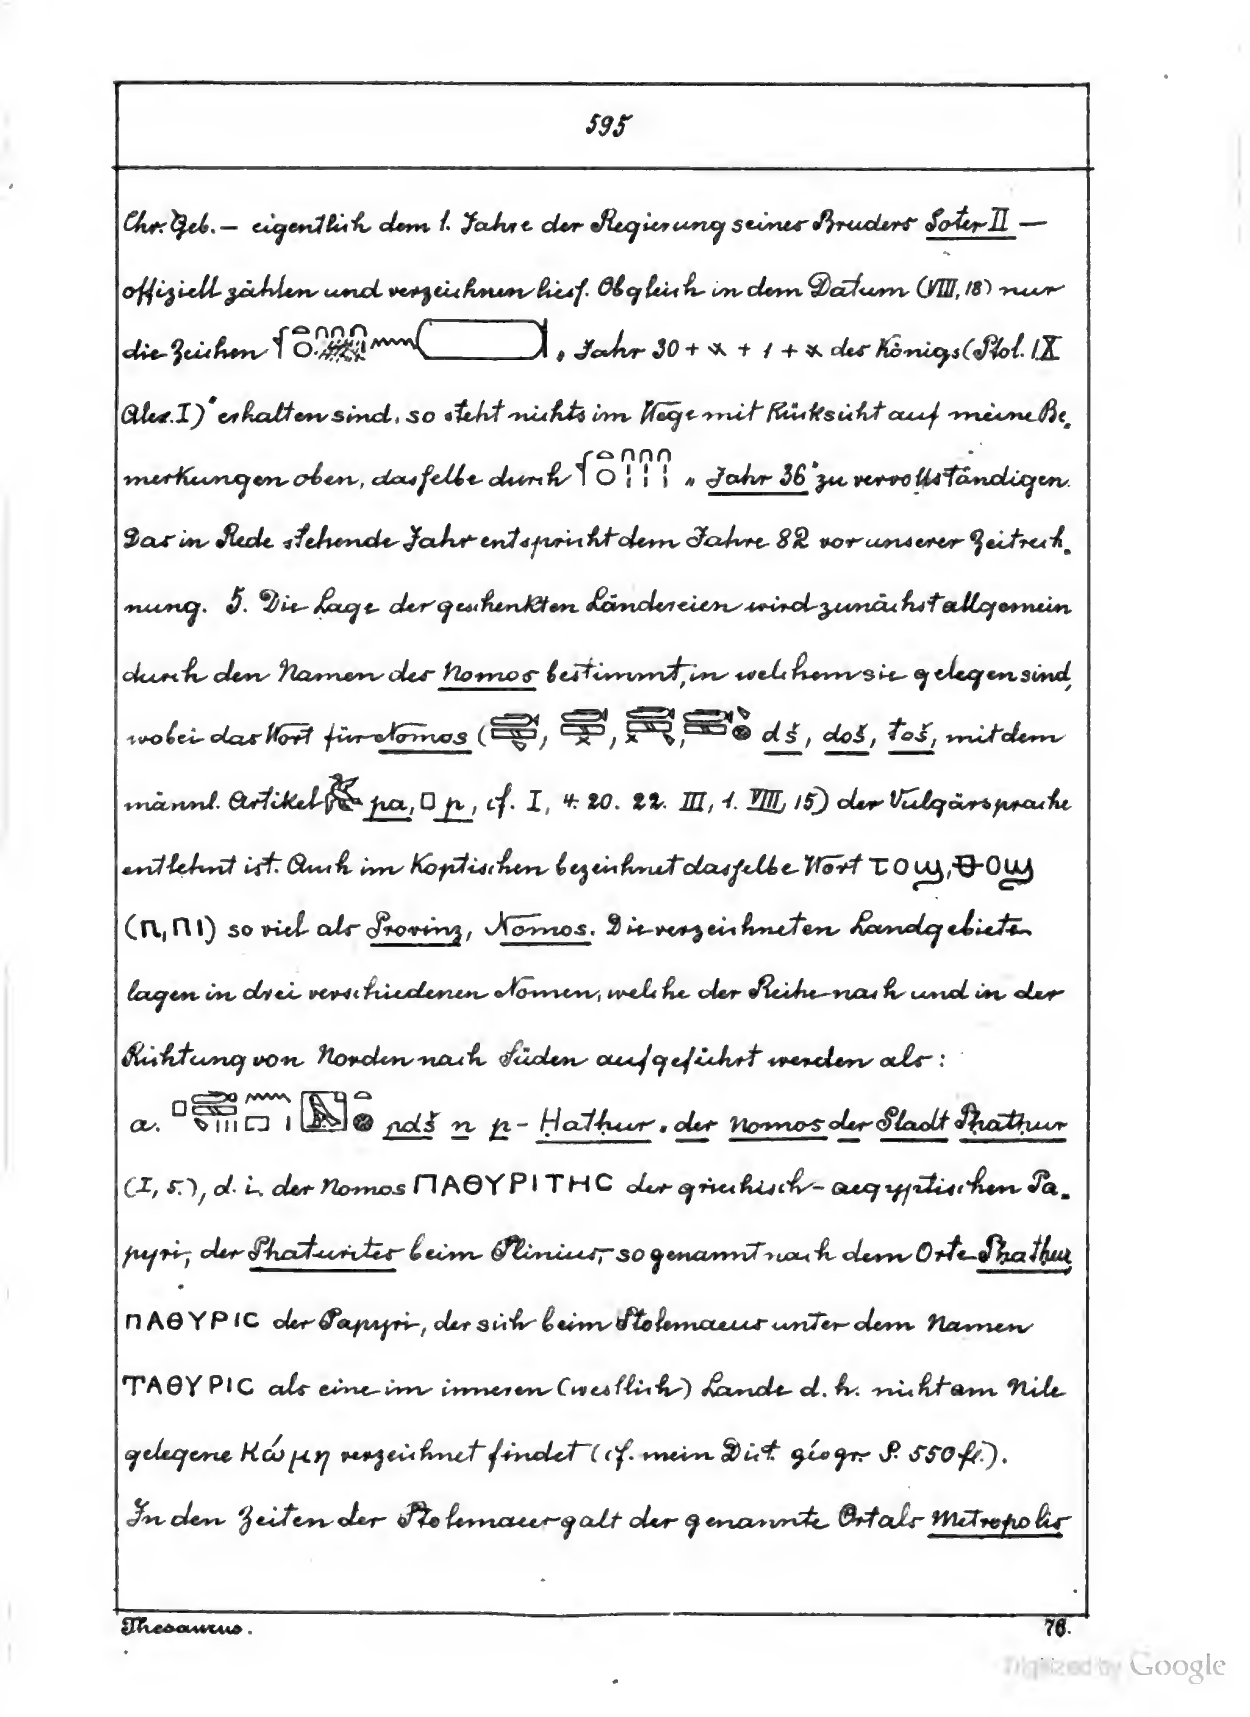 595
Chr. Geb. – eigentlich dem 1. Jahre der Regierung seines Bruders Soter II –
offiziell zählen und verzeichnen liess. Obgleich in dem Datum (VIII, 18) nur
die Zeichen „Jahr 30 + x + 1 + x des Königs (Ptol. IX
Alex. I)“ erhalten sind, so steht nichts im Wege mit Rücksicht auf meine Be-
merkungen oben, dasselbe durch „Jahr 36“ zu vervollständigen.
Das in Rede stehende Jahr entspricht dem Jahre 82 vor unserer Zeitrech-
nung. 5. Die Lage der geschenkten Ländereien wird zunächst allgemein
durch den Namen des Nomos bestimmt, in welchem sie gelegen sind,
wobei das Wort für Nomos ( , , , dš, doš, toš, mit dem
männl. Artikel pa, p, cf. I, 4. 20. 22. III, 1. VIII, 15) der Vulgärsprache
entlehnt ist. Auch im Koptischen bezeichnet dasselbe Wort ⲧⲟϣ, ⲑⲟϣ
(ⲡ, ⲡⲓ) so viel als Provinz, Nomos. Die verzeichneten Landgebiete
lagen in drei verschiedenen Nomen, welche der Reihe nach und in der
Richtung von Norden nach Süden aufgeführt werden als:
a. pdš n p-Hathur „der Nomos der Stadt Phathur
(I, 5.), d. i. der Nomos ΠΑΘΥΡΙΤΗC der griechisch-aegyptischen Pa-
pyri, der Phaturites beim Plinius, so genannt nach dem Orte Phathur
ΠΑΘΥΡΙC der Papyri, der sich beim Ptolemaeus unter dem Namen
ΤΑΘΥΡΙC als eine im inneren (westlich) Lande d. h. nicht am Nile
gelegene Κώμη verzeichnet findet (cf. mein Dict. géogr. S. 550 fl.).
In den Zeiten der Ptolemaeer galt der genannte Ort als Metropolis
Thesaurus.
76.
Digitized by Google